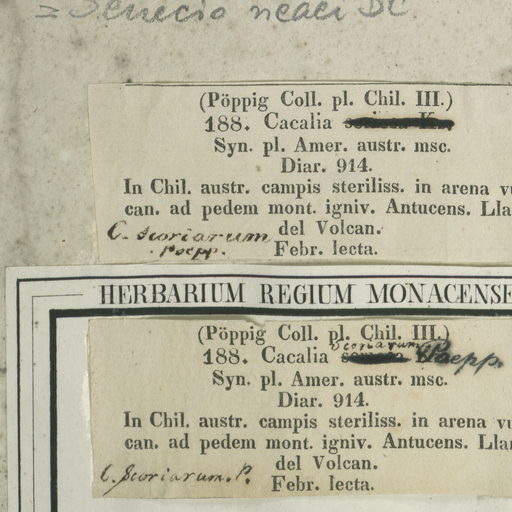 = Senecio neaei DC
(Pöppig Coll. pl. Chil. III.)
188. Cacalia
Syn. pl. Amer. austr. msc.
Diar. 914.
In Chil. austr. campis steriliss. in arena vu
can. ad pedem mont. igniv. Antucens. Lla
del Volcan.
C. scoriarum
Poepp.
Febr. lecta.
HERBARIUM REGIUM MONACENSE
(Pöppig Coll. pl. Chil. III.)
188. Cacalia scoriarum Poepp.
Syn. pl. Amer. austr. msc.
Diar. 914.
In Chil. austr. campis steriliss. in arena vu
can. ad pedem mont. igniv. Antucens. Lla
del Volcan.
C. scoriarum. P.
Febr. lecta.